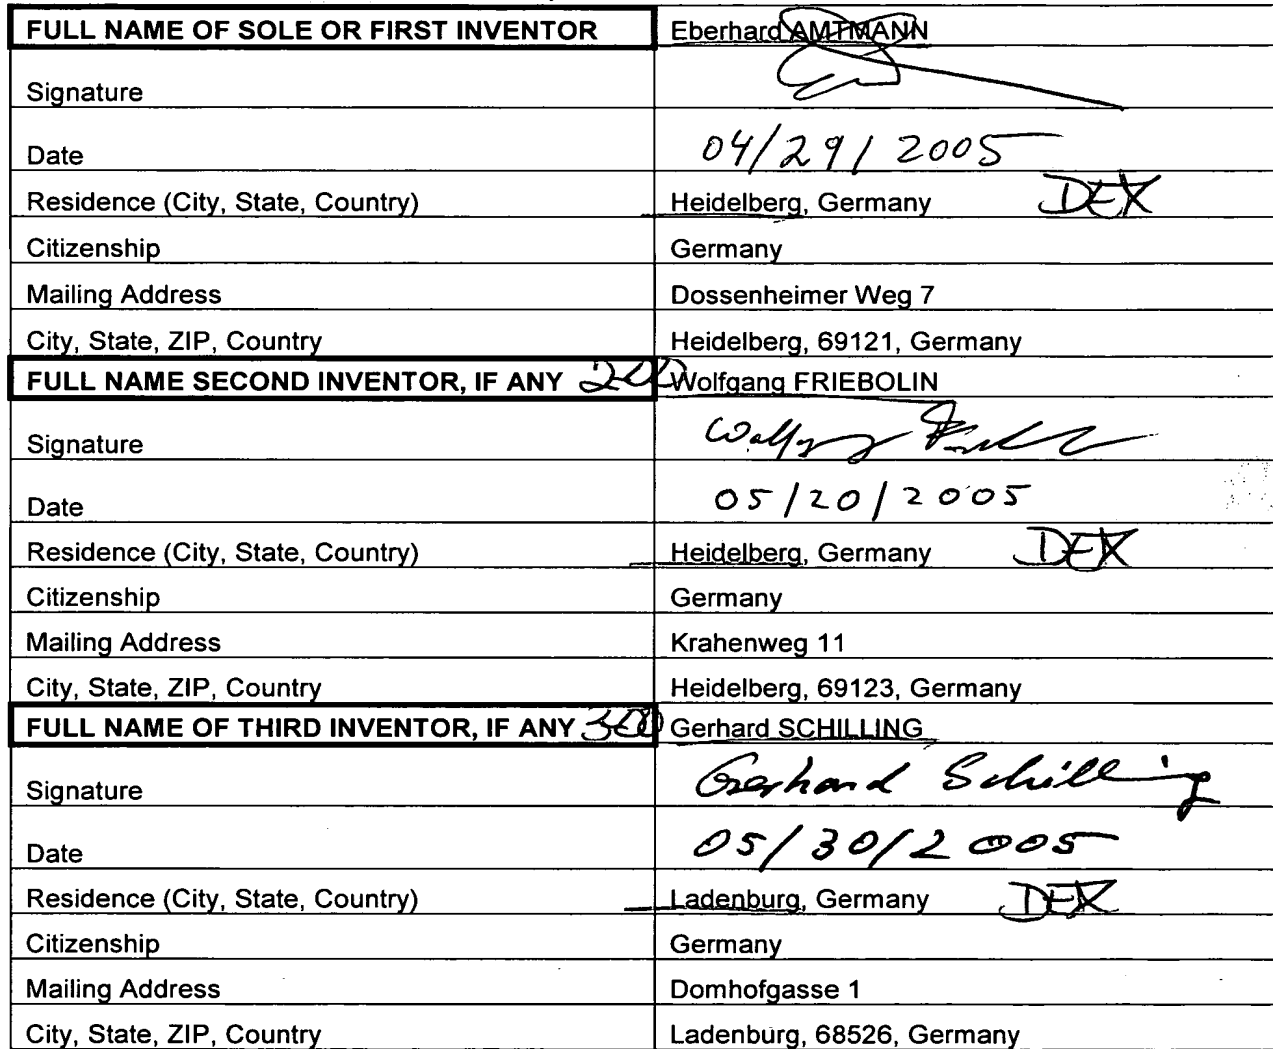 FULL NAME OF SOLE OR FIRST INVENTOR Eberhard AMTMANN
Signature
Date 04/29/2005
Residence (City, State, Country) Heidelberg, Germany DEX
Citizenship Germany
Mailing Address Dossenheimer Weg 7
City, State, ZIP, Country Heidelberg, 69121, Germany
FULL NAME SECOND INVENTOR, IF ANY 200 Wolfgang FRIEBOLIN
Signature
Date 05/20/2005
Residence (City, State, Country) Heidelberg, Germany DEX
Citizenship Germany
Mailing Address Krahenweg 11
City, State, ZIP, Country Heidelberg, 69123, Germany
FULL NAME OF THIRD INVENTOR, IF ANY 300 Gerhard SCHILLING
Signature Gerhard Schilling
Date 05/30/2005
Residence (City, State, Country) Ladenburg, Germany DEX
Citizenship Germany
Mailing Address Domhofgasse 1
City, State, ZIP, Country Ladenburg, 68526, Germany